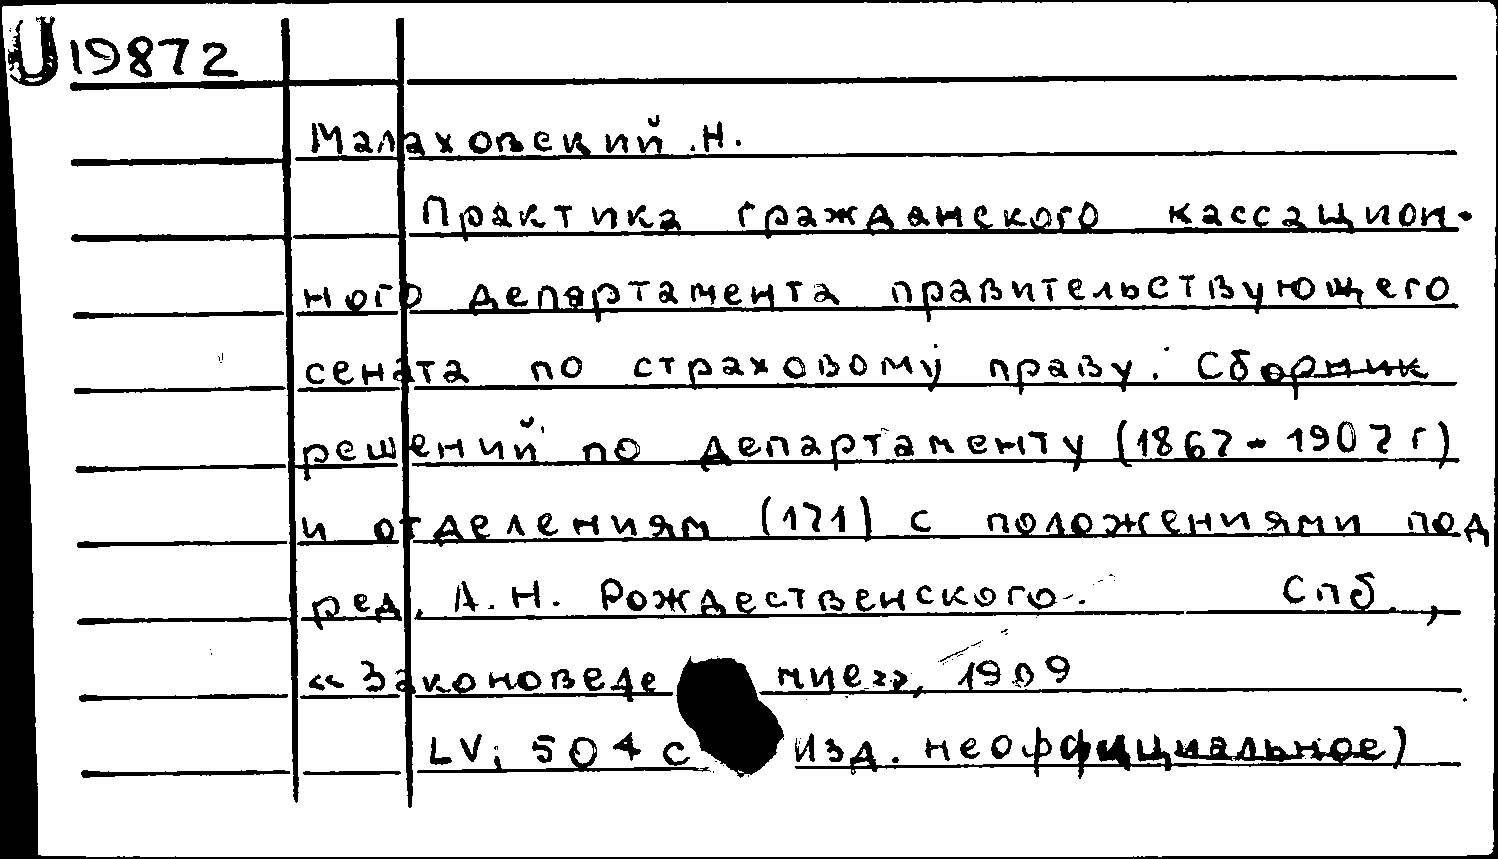 U 19872
Малаховский .Н.
Практика гражданского кассацион-
ного департамента правительствующего
сената по страховому праву. Сборник
решений по департаменту (1867-1907 г)
и отделениям (171) с положениями под
ред. А.Н. Рождественского. Спб.,
«Законоведе ние», 1909
LV; 504 с Изд. неоффициальное)